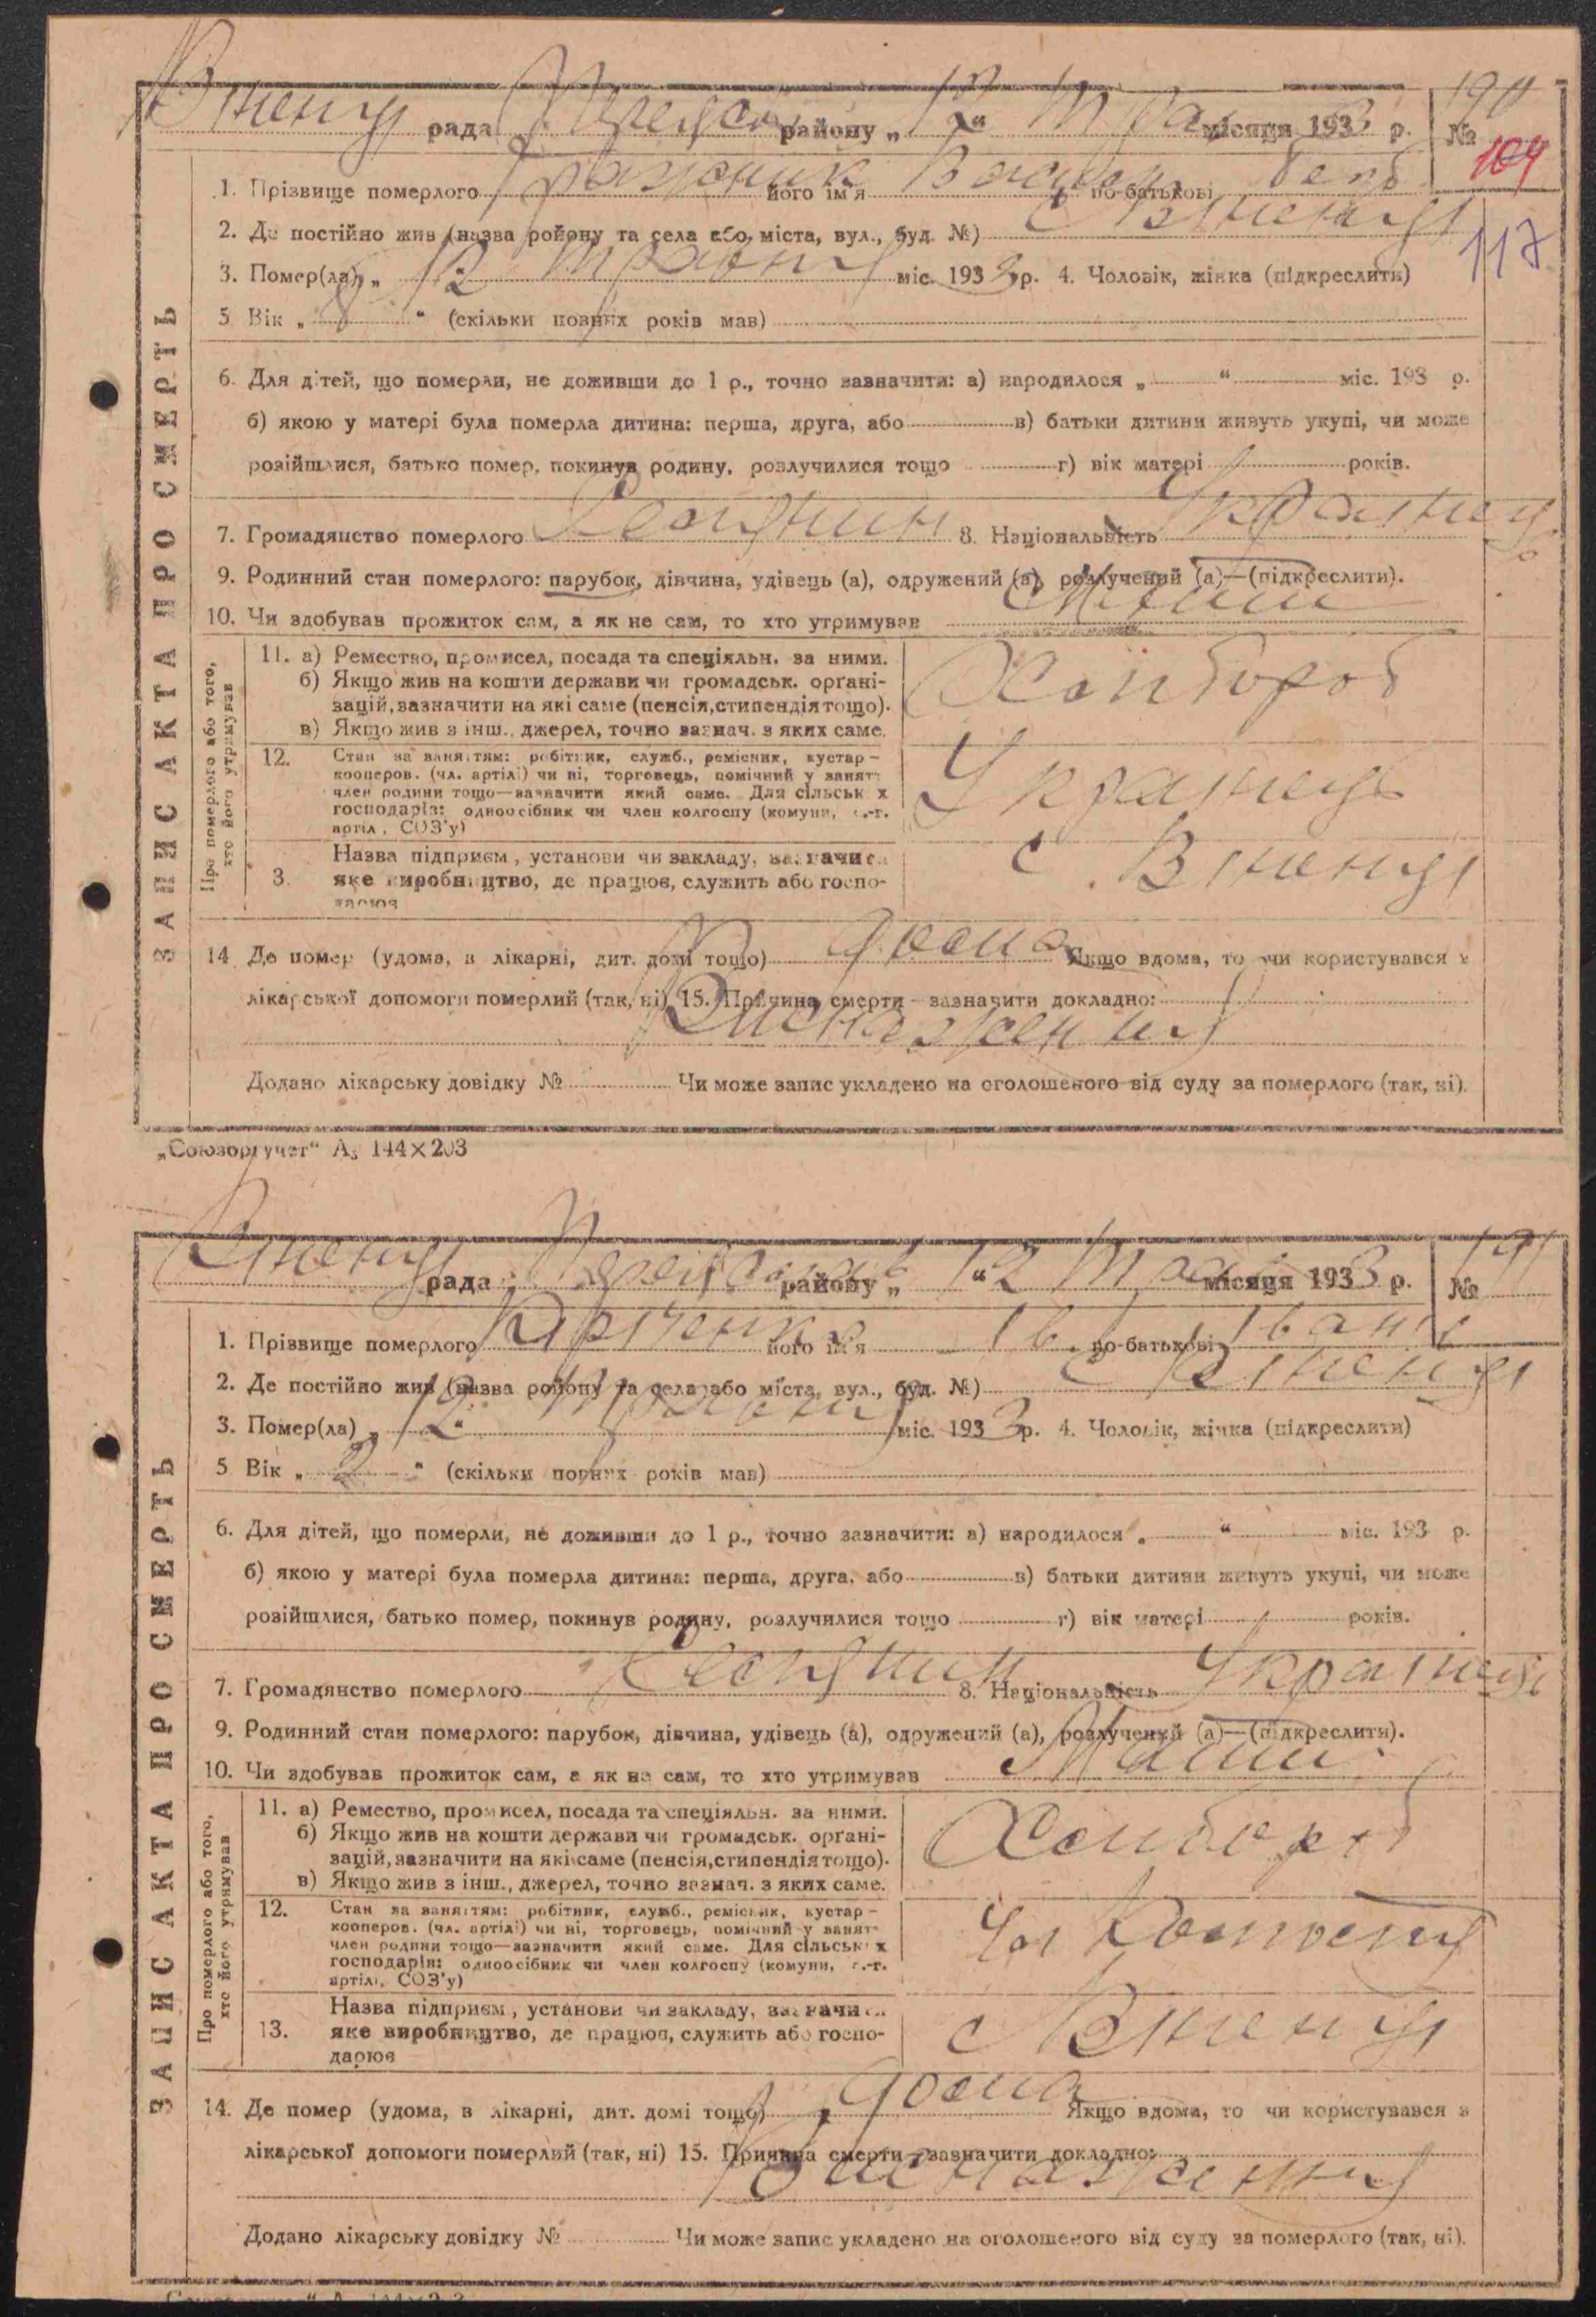 рада району „ 12 “ Трав місяця 1933 р. № 190
104
1. Прізвище померлого його ім'я по-батькові
2. Де постійно жив (назва ройону та села або міста, вул., буд. №) с
117
3. Помер(ла) „ 12 “ травня міс. 1933 р. 4. Чоловік, жінка (підкреслити)
5 Вік „ 8 “ (скільки повних років мав)
6. Для дітей, що померли, не доживши до 1 р., точно зазначити: а) народилося „ “ міс. 193 р.
б) якою у матері була померла дитина: перша, друга, або в) батьки дитини живуть укупі, чи може
розійшлися, батько помер, покинув родину, розлучилися тощо г) вік матері років.
7. Громадянство померлого 8. Національність Украінец
9. Родинний стан померлого: парубок, дівчина, удівець (а), одружений (а), розлучений (а)—(підкреслити).
10. Чи здобував прожиток сам, а як не сам, то хто утримував
ЗАПИС АКТА ПРО СМЕРТЬ
Про померлого або того, хто його утримував
11. а) Ремество, промисел, посада та спеціяльн. за ними.
б) Якщо жив на кошти держави чи громадськ. органі-
зацій, зазначити на які саме (пенсія, стипендія тощо).
в) Якщо жив з інш., джерел, точно зазнач. з яких саме.
Хлібороб
12. Стан за заняттям: робітник, служб., ремісник, кустар –
кооперов. (чл. артілі) чи ні, торговець, помічний у занятт
член родини тощо—зазначити який саме. Для сільських
господарів: одноосібник чи член колгоспу (комуни, с.-г.
артіл, СОЗ'у)
Украінець
3. Назва підприєм, установи чи закладу, зазначити
яке виробництво, де працює, служить або госпо-
дарює
с.
14 Де помер (удома, в лікарні, дит. домі тощо) дома Якщо вдома, то чи користувався з
лікарської допомоги померлий (так, ні) 15. Причина смерти – зазначити докладно:
Виснаження
Додано лікарську довідку № Чи може запис укладено на оголошеного від суду за померлого (так, ні).
„Союзоргучет“ А₅ 144×203
рада району „ 12 “ Трав місяця 1933 р. № 191
1. Прізвище померлого його ім'я Ів по-батькові Іван
2. Де постійно жив (назва ройону та села або міста, вул., буд. №) с
3. Помер(ла) „ 12 “ травня міс. 1933 р. 4. Чоловік, жінка (підкреслити)
5 Вік „ 2 “ (скільки повних років мав)
6. Для дітей, що померли, не доживши до 1 р., точно зазначити: а) народилося „ “ міс. 193 р.
б) якою у матері була померла дитина: перша, друга, або в) батьки дитини живуть укупі, чи може
розійшлися, батько помер, покинув родину, розлучилися тощо г) вік матері років.
7. Громадянство померлого 8. Національність Украінець
9. Родинний стан померлого: парубок, дівчина, удівець (а), одружений (а), розлучений (а)—(підкреслити).
10. Чи здобував прожиток сам, а як не сам, то хто утримував Мати
ЗАПИС АКТА ПРО СМЕРТЬ
Про померлого або того, хто його утримував
11. а) Ремество, промисел, посада та спеціяльн. за ними.
б) Якщо жив на кошти держави чи громадськ. органі-
зацій, зазначити на які саме (пенсія, стипендія тощо).
в) Якщо жив з інш., джерел, точно зазнач. з яких саме.
Хлібороб
12. Стан за заняттям: робітник, служб., ремісник, кустар –
кооперов. (чл. артілі) чи ні, торговець, помічний у занятт
член родини тощо—зазначити який саме. Для сільських
господарів: одноосібник чи член колгоспу (комуни, с.-г.
артіл, СОЗ'у)
Чл Колгоспу
13. Назва підприєм, установи чи закладу, зазначити
яке виробництво, де працює, служить або госпо-
дарює
с
14. Де помер (удома, в лікарні, дит. домі тощо) дома Якщо вдома, то чи користувався з
лікарської допомоги померлий (так, ні) 15. Причина смерти – зазначити докладно:
Виснаження
Додано лікарську довідку № Чи може запис укладено на оголошеного від суду за померлого (так, ні).